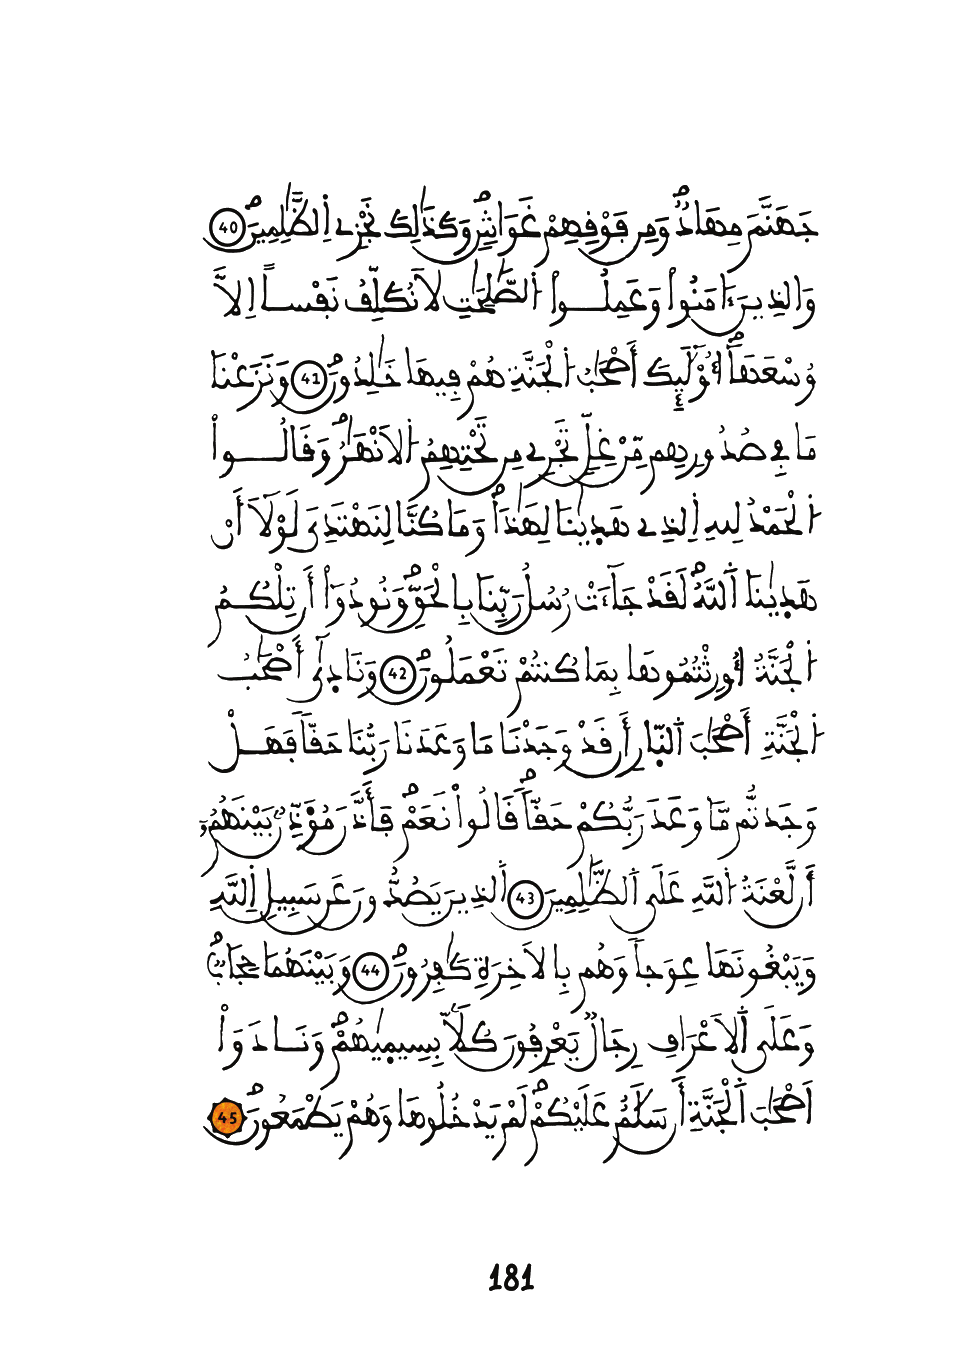 جَهَنَّمَ مِهَادٌ وَمِن فَوْقِهِمْ غَوَاشٍ وَكَذَٰلِكَ نَجْزِے اِ۬لظَّٰلِمِينَ 40
وَالذِينَ ءَامَنُواْ وَعَمِلُواْ اُ۬لصَّٰلِحَٰتِ لَا نُكَلِّفُ نَفْساً اِلَّا
وُسْعَهَا أُوْلَٰٓئِكَ أَصْحَٰبُ اُ۬لْجَنَّةِ هُمْ فِيهَا خَٰلِدُونَ 41 وَنَزَعْنَا
مَا فِے صُدُورِهِم مِّنْ غِلٍّ تَجْرِے مِن تَحْتِهِمُ اُ۬لَانْهَٰرُ وَقَالُواْ
اُ۬لْحَمْدُ لِلهِ اِ۬لذِے هَدٜيٰنَا لِهَٰذَا وَمَا كُنَّا لِنَهْتَدِيَ لَوْلَآ أَنْ
هَدٜيٰنَا اَ۬للَّهُ لَقَدْ جَآءَتْ رُسُلُ رَبِّنَا بِالْحَقِّ وَنُودُوٓاْ أَن تِلْكُمُ
اُ۬لْجَنَّةُ أُورِثْتُمُوهَا بِمَا كُنتُمْ تَعْمَلُونَ 42 وَنَادٜيٰٓ أَصْحَٰبُ
اُ۬لْجَنَّةِ أَصْحَٰبَ اَ۬لنّ۪ارِ أَن قَدْ وَجَدْنَا مَا وَعَدَنَا رَبُّنَا حَقّاً فَهَلْ
وَجَدتُّم مَّا وَعَدَ رَبُّكُمْ حَقّاً قَالُواْ نَعَمْ فَأَذَّنَ مُؤَذِّنٌ بَيْنَهُمُۥٓ
أَن لَّعْنَةُ اُ۬للَّهِ عَلَي اَ۬لظَّٰلِمِينَ 43 اَ۬لذِينَ يَصُدُّونَ عَن سَبِيلِ اِ۬للَّهِ
وَيَبْغُونَهَا عِوَجاً وَهُم بِالَاخِرَةِ كَٰفِرُونَ 44 وَبَيْنَهُمَا حِجَابٌ
وَعَلَي اَ۬لَاعْرَافِ رِجَالٌ يَعْرِفُونَ كُلّاً بِسِيمٜيٰهُمْ وَنَادَوَاْ
اَصْحَٰبَ اَ۬لْجَنَّةِ أَن سَلَٰمٌ عَلَيْكُمْ لَمْ يَدْخُلُوهَا وَهُمْ يَطْمَعُونَ 45
181